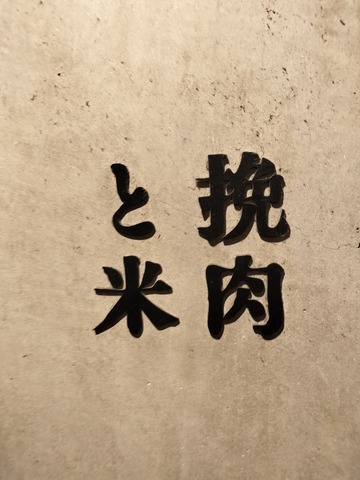 挽肉
と米